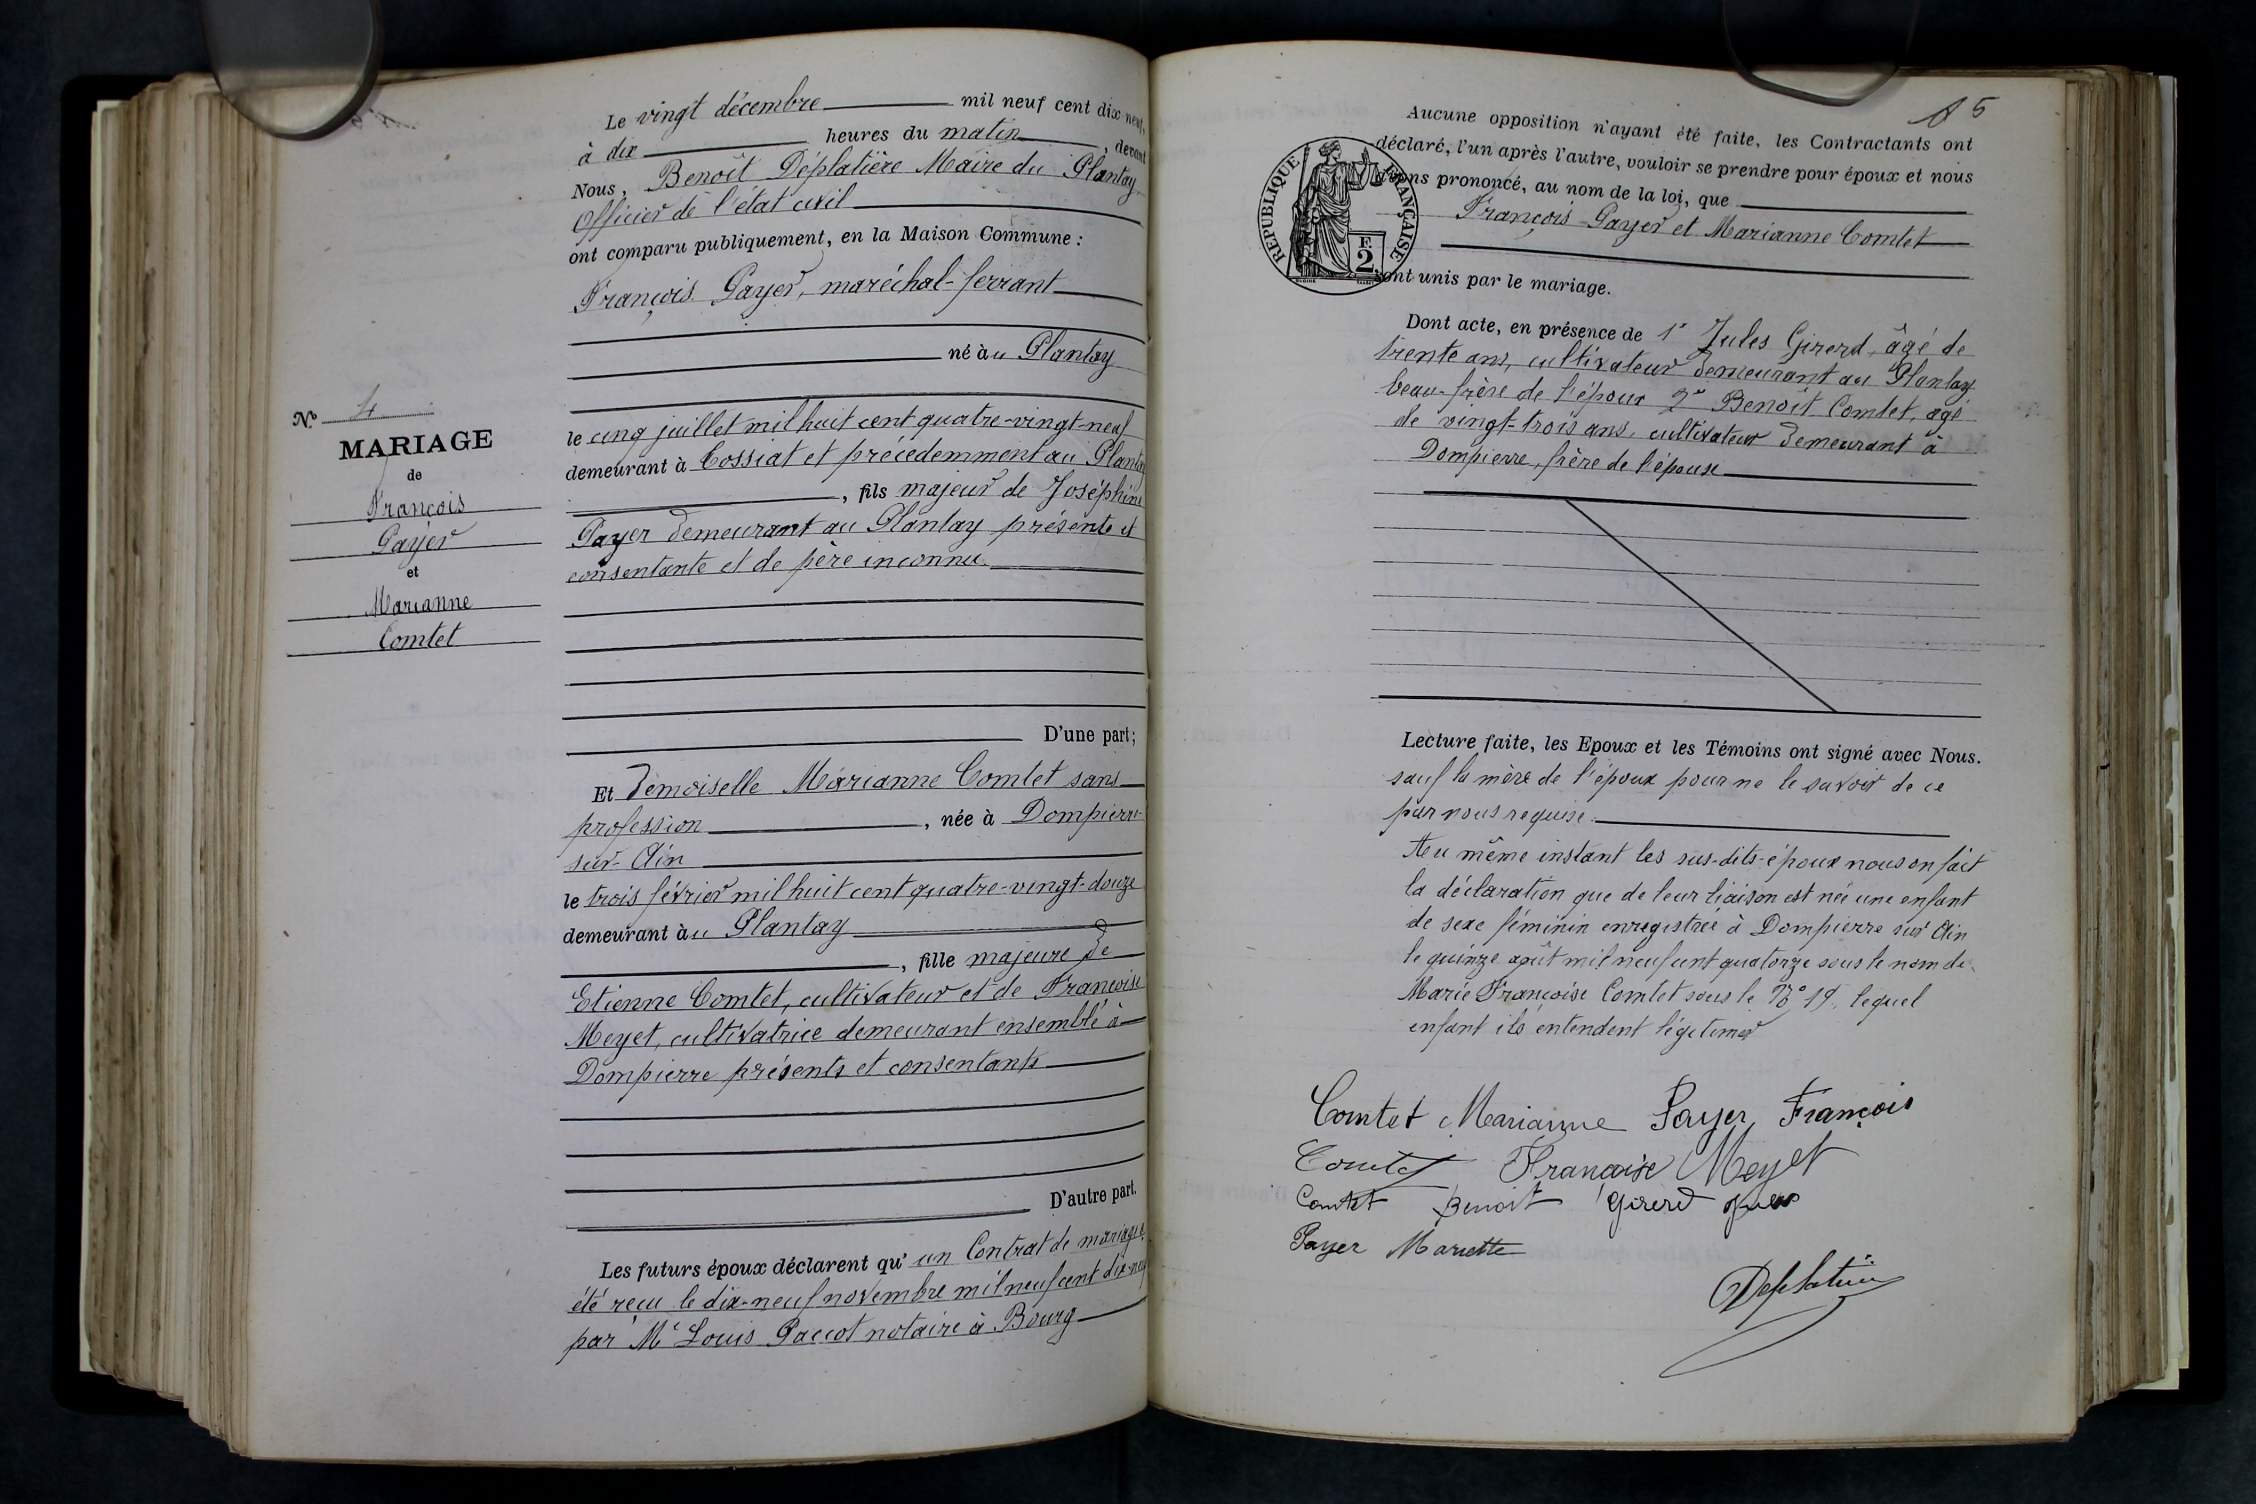 Le vingt décembre mil neuf cent dix-neuf,
à dix heures du matin, devant
Nous, Benoît Déplatière Maire du Plantay
Officier de l'état civil
ont comparu publiquement, en la Maison Commune :
François Payer, maréchal-ferrant
né à u Plantay
le cinq juillet mil huit cent quatre-vingt-neuf
demeurant à Cossiat et précédemment au Plantay
, fils majeur de Joséphine
Payer demeurant au Plantay présente et
consentante et de père inconnu.
N° 4
MARIAGE
de
François
Payer
et
Marianne
Comtet
D'une part;
Et demoiselle Marianne Comtet sans
profession, née à Dompierre-
sur-Ain
le trois février mil huit cent quatre-vingt-douze
demeurant à u Plantay
, fille majeure de
Etienne Comtet, cultivateur et de Françoise
Meyet, cultivatrice demeurant ensemble à
Dompierre présents et consentants
D'autre part.
Les futurs époux déclarent qu' un Contrat de mariage a
été reçu le dix-neuf novembre mil neuf cent dix-neuf
par Me Louis Paccot notaire à Bourg
15
Aucune opposition n'ayant été faite, les Contractants ont
déclaré, l'un après l'autre, vouloir se prendre pour époux et nous
avons prononcé, au nom de la loi, que
François Payer et Marianne Comtet
sont unis par le mariage.
RÉPUBLIQUE FRANÇAISE
F.
2
Dont acte, en présence de 1° Jules Girerd, âgé de
trente ans, cultivateur demeurant au Plantay
beau-frère de l'époux 2° Benoît Comtet, âgé
de vingt-trois ans, cultivateur demeurant à
Dompierre, frère de l'épouse
Lecture faite, les Epoux et les Témoins ont signé avec Nous.
sauf la mère de l'époux pour ne le savoir de ce
par nous requise.
Au même instant les sus-dits époux nous on fait
la déclaration que de leur liaison est née une enfant
de sexe féminin enregistrée à Dompierre sur Ain
le quinze août mil neuf cent quatorze sous le nom de
Marie Françoise Comtet sous le N° 19. lequel
enfant ils entendent légitimer
Comtet Marianne Payer François
Comtet Françoise Meyet
Comtet Benoit Girerd Jules
Payer Mariette
Deplatière